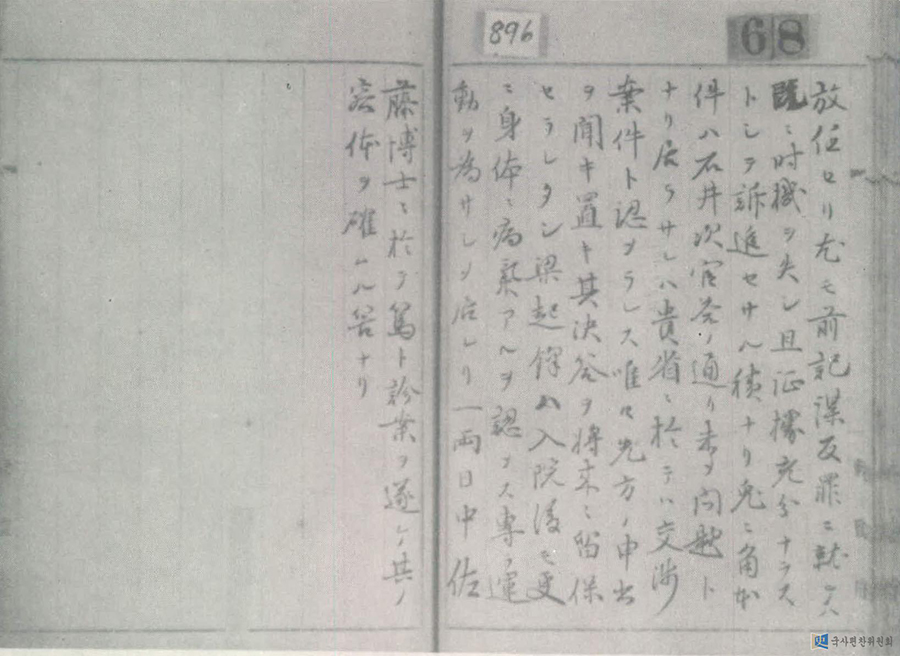 896
68
放任セリ尤モ前記謀反罪ニ就テハ
既ニ時機ヲ失シ且証據充分ナラス
トシテ訴追セサル積ナリ兎ニ角本
件ハ石井次官答ノ通リ未タ問題ト
ナリ居ラサレハ貴省ニ於テハ交渉
案件ト認メラレス唯タ先方ノ申出
ヲ聞キ置キ其決答ヲ将来ニ留保
セラレタシ梁起鐸ハ入院後モ更
ニ身体ニ病気アルヲ認メス専ラ運
動ヲ為サシメ居レリ一両日中佐
藤博士ニ於テ篤ト診案ヲ遂ケ其ノ
容体ヲ確ムル筈ナリ
국사편찬위원회